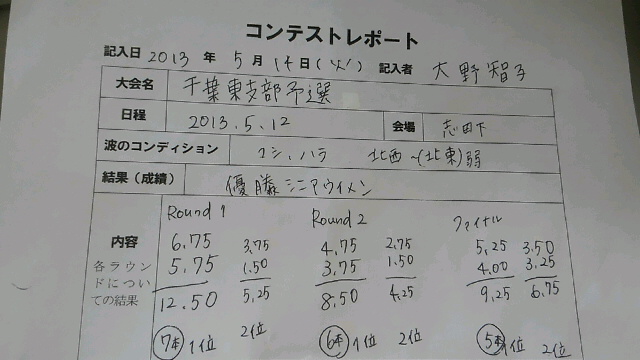 コンテストレポート
記入日 2013 年 5 月 14 日(火) 記入者 大野智子
大会名 千葉東支部予選
日程 2013.5.12 会場 志田下
波のコンディション コシ、ハラ 北西~(北東)弱
結果(成績) 優勝シニアウイメン
Round 1 Round 2 ファイナル
内容 6.75 3.75 4.75 2.75 5.25 3.50
各ラウン 5.75 1.50 3.75 1.50 4.00 3.25
ドについ
ての結果 12.50 5.25 8.50 4.25 9.25 6.75
7本 1位 2位 6本 1位 2位 5本 1位 2位